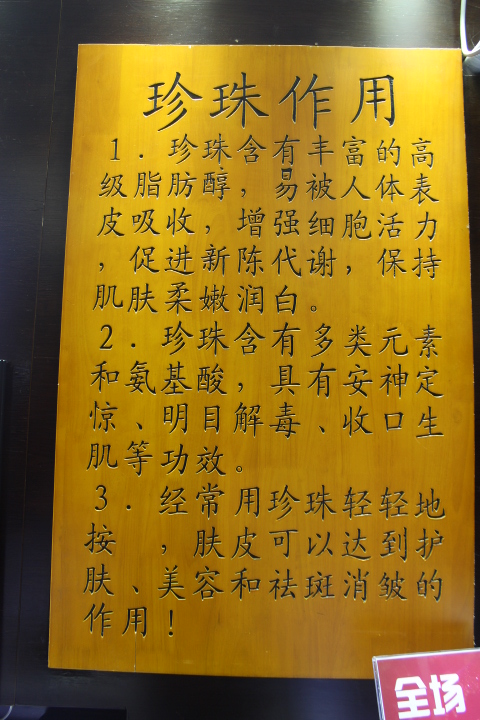 珍珠作用
1.珍珠含有丰富的高
级脂肪醇，易被人体表
皮吸收，增强细胞活力
，促进新陈代谢，保持
肌肤柔嫩润白。
2.珍珠含有多类元素
和氨基酸，具有安神定
惊、明目解毒、收口生
肌等功效。
3.经常用珍珠轻轻地
按 ，肤皮可以达到护
肤、美容和祛斑消皱的
作用！
全场